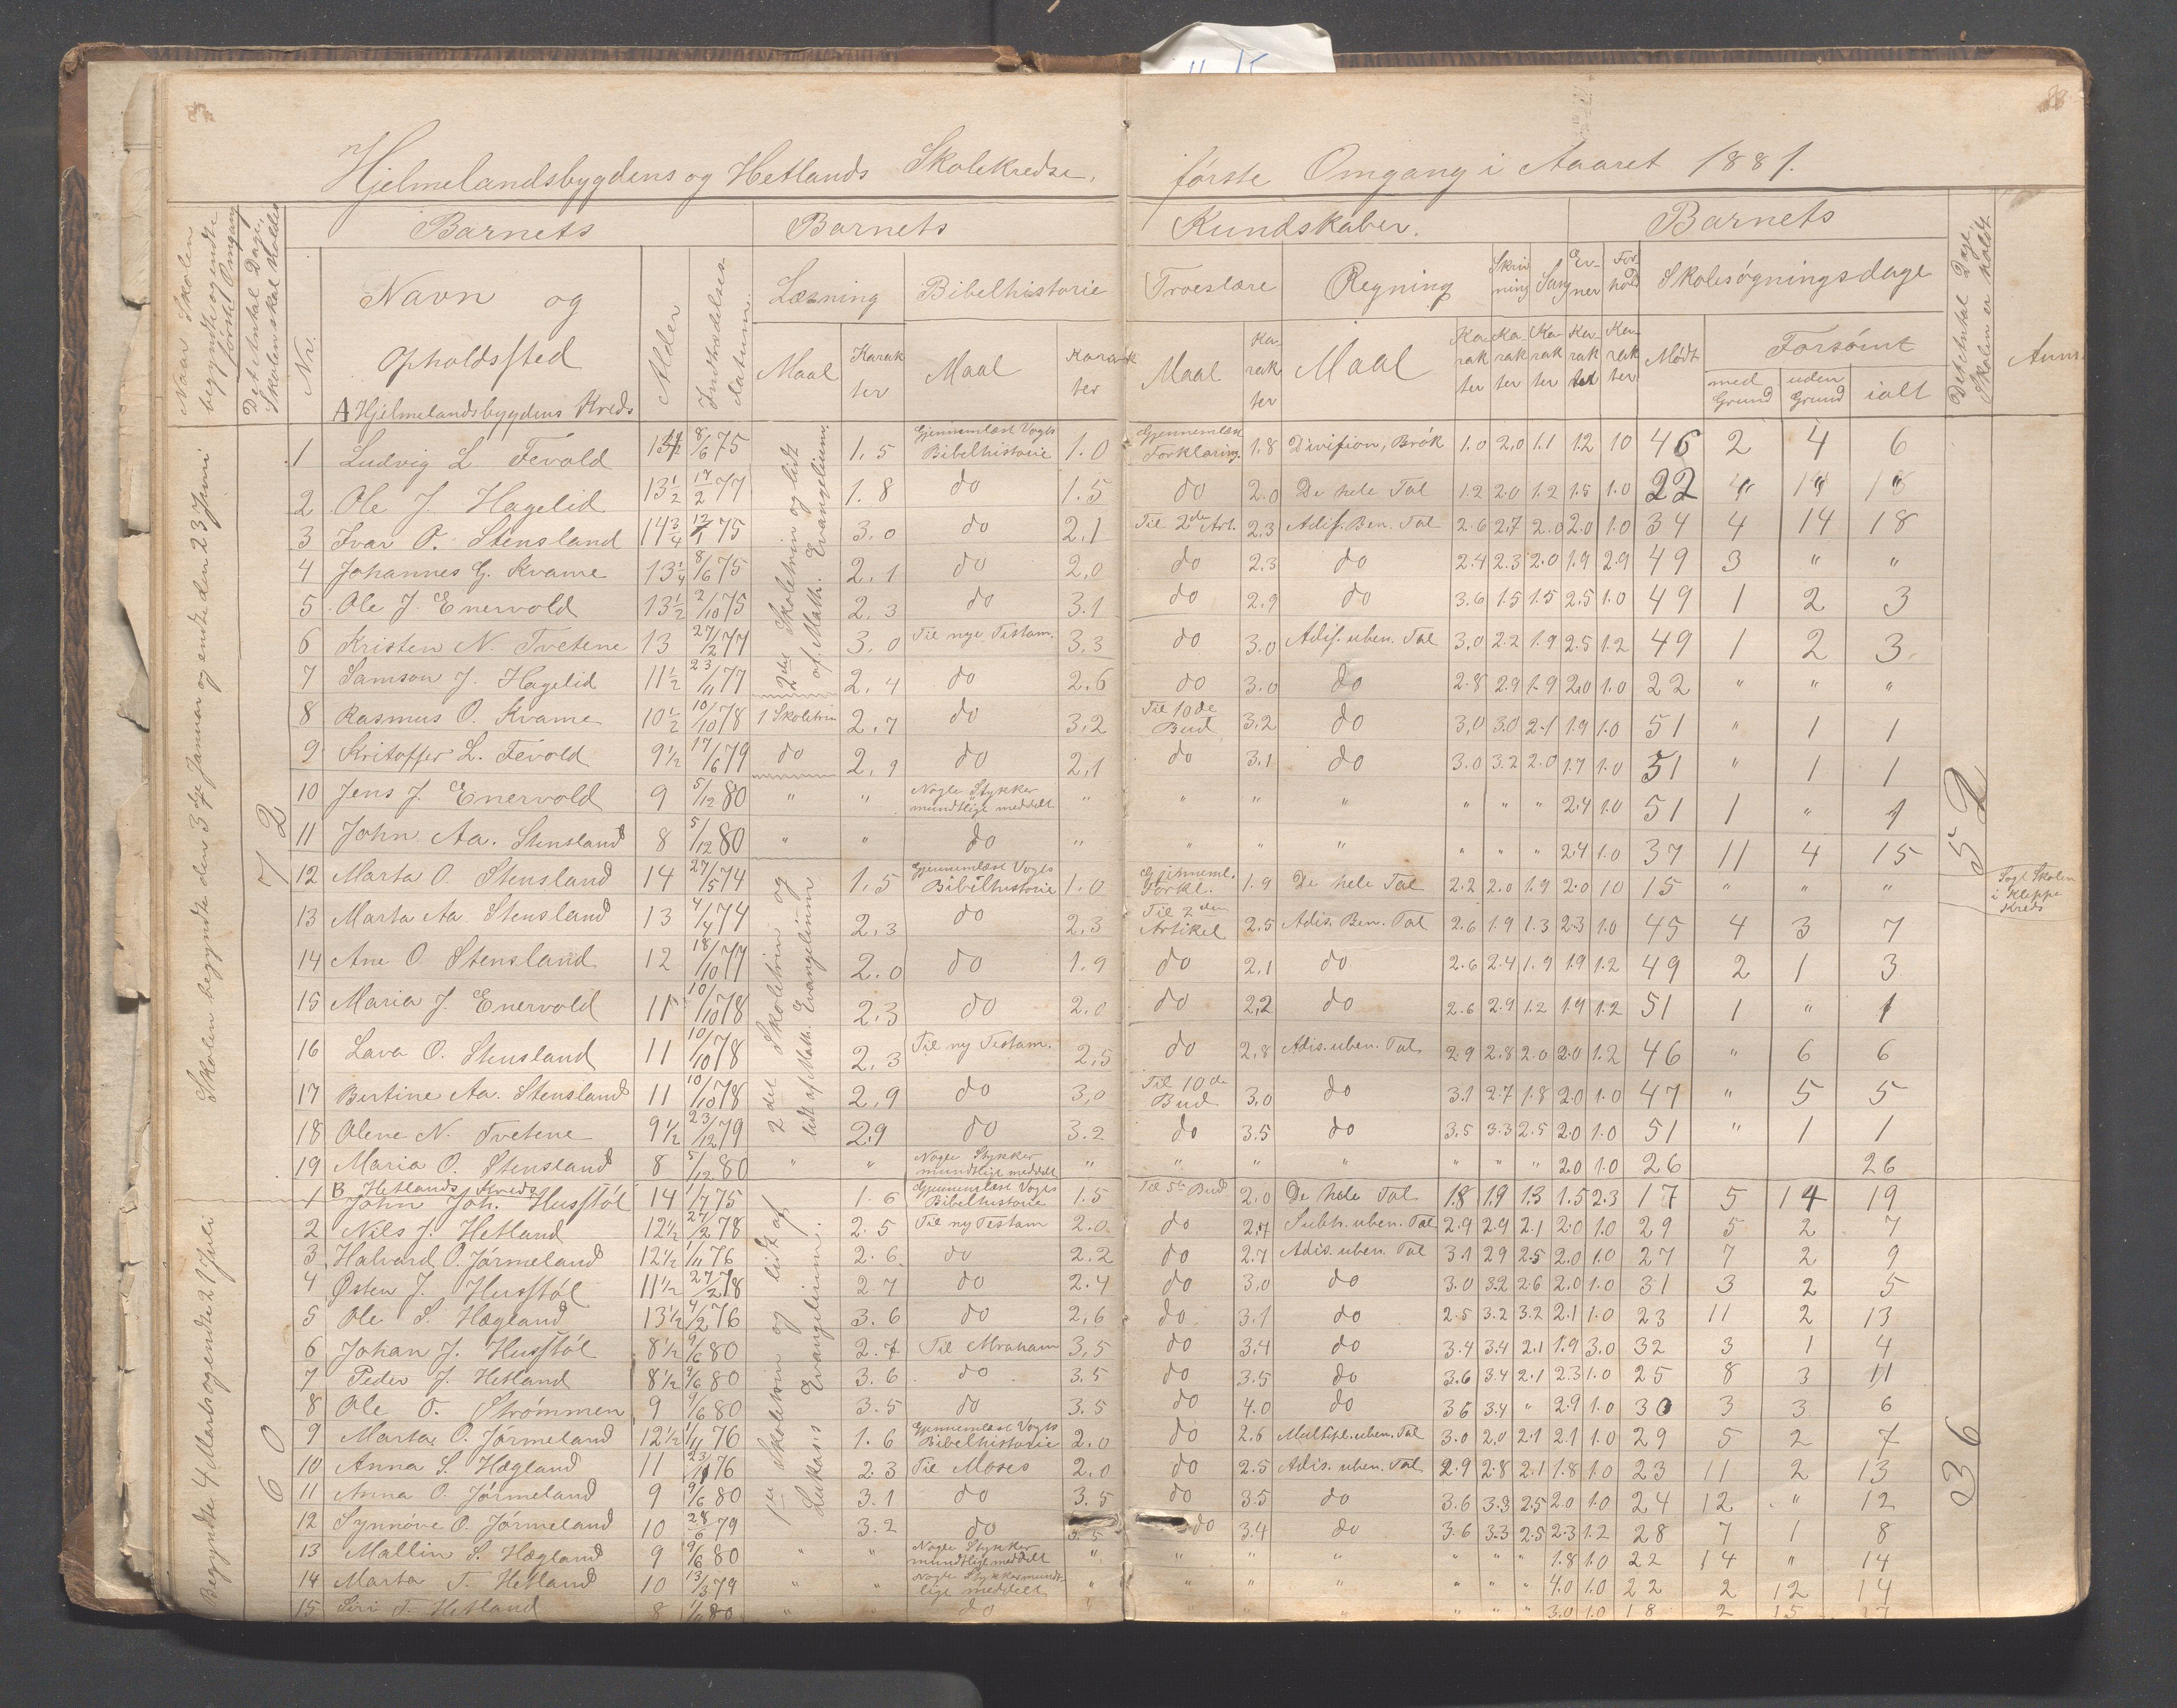 Hjelmelandsbygdens og Hetlands Skolekredse, første Omgang i Aaret 1881.
Naar Skolen begyndte og endte første Omgang
Det Antal Dage, Skolen skal holdes
Nr.
Barnets
Navn og Opholdssted
Alder
Indtrædelsesdatum
Barnets Kundskaber.
Læsning Bibelhistorie Troeslære Regning Skrivning Sang Evner Forhold
Maal Karakter Maal Karakter Maal Karakter Maal Karakter Karakter Karakter Karakter Karakter
Barnets
Skolesøgningsdage
Mødt Forsømt
med Grund uden Grund ialt
Det Antal Dage, Skolen er holdt
Anm.
Skolen begyndte den 3dje Januar og endte den 23 Juni
72
2det Skoletrin og lidt af Math. Evangelium.
52
A Hjelmelandsbygdens Kreds
1 Ludvig L. Fevold 8/6 75 1.5 Gjennemlæst Vogts Bibelhistorie 1.0 Gjennemlæst Forklaring. 1.8 Division, Brøk 1.0 2.0 1.1 1.2 1.0 46 2 4 6
2 Ole J. Hagelid 13½ 17/2 77 1.8 do 1.5 do 2.0 De hele Tal 1.2 2.0 1.2 1.5 1.0 22 " " "
3 Ivar O. Stensland 14¾ 12/1 75 3.0 do 2.1 Til 2den Art. 2.3 Adis. Ben. Tal 2.6 2.7 2.0 2.0 1.0 34 4 14 18
4 Johannes G. Kvame 13¼ 8/6 75 2.1 do 2.0 do 2.3 do 2.4 2.3 2.0 1.9 2.9 49 3 " "
5 Ole J. Enervold 13½ 2/10 75 2.3 do 3.1 do 2.9 do 3.6 1.5 1.5 2.5 1.0 49 1 2 3
6 Kristen N. Tvetene 13 27/2 77 3.0 Til nye Testam. 3.3 do 3.0 Adis. uben. Tal 3.0 2.2 1.9 2.5 1.2 49 1 2 3
7 Samson J. Hagelid 11½ 23/11 77 2.4 do 2.6 do 3.0 do 2.8 2.9 1.9 2.0 1.0 22 " " "
8 Rasmus O. Kvame 10½ 10/10 78 1 Skoletrin 2.7 do 3.2 Til 10de Bud 3.2 do 3.0 3.0 2.1 1.9 1.0 51 " 1 1
9 Kritoffer L. Fevold 9½ 17/6 79 do 2.9 do 2.1 do 3.1 do 3.0 3.2 2.0 1.7 1.0 51 " 1 1
10 Jens J. Enervold 9 5/12 80 " " Nogle Stykker mundtlige meddelt " " " " " " " 2.4 1.0 51 1 " 1
11 John Aa. Stensland 8 5/12 80 " " do " " " " " " " 2.4 1.0 37 11 4 15
2det Skoletrin og lidt af Math. Evangelium
12 Marta O. Stensland 14 27/5 74 1.5 Gjennemlæst Vogts Bibelhistorie 1.0 Gjenneml. Forkl. 1.9 De hele Tal 2.2 2.0 1.9 2.0 1.0 15 " " " Søgt Skolen i Kleppe Kreds
13 Marta Aa Stensland 13 4/4 74 2.3 do 2.3 Til 2den Artikel 2.5 Adis. Ben. Tal 2.6 1.9 1.3 2.3 1.0 45 4 3 7
14 Ane O. Stensland 12 18/10 77 2.0 do 1.9 do 2.1 do 2.6 2.4 1.9 1.9 1.2 49 2 1 3
15 Maria J. Enervold 11 10/10 78 2.3 do 2.0 do 2.2 do 2.6 2.9 1.2 1.9 1.2 51 1 " 1
16 Lava O. Stensland 11 10/10 78 2.3 Til ny Testam. 2.5 do 2.8 Adis. uben. Tal 2.9 2.8 2.0 2.0 1.2 46 " 6 6
17 Bertine Aa. Stensland 11 10/10 78 2.9 do 3.0 Til 10de Bud 3.0 do 3.1 2.7 1.8 2.0 1.0 47 " 5 5
18 Olene N. Tvetene 9½ 23/12 79 2.9 do 3.2 do 3.5 do 3.5 3.3 2.5 2.0 1.0 51 " 1 1
19 Maria O. Stensland 8 5/12 80 " " Nogle Stykker mundtligt meddelt " " " " " " " 2.0 1.0 26 26
Begyndte 4 Marts og endte 21 Juli
60
1ste Skoletrin og lidt af Lukas's Evangelium.
36
B. Hetlands Kreds
1 John Joh. Husstøl 14 1/7 75 1.6 Gjennemlæst Vogts Bibelhistorie 1.5 Til 5te Bud 2.0 De hele Tal 1.8 1.9 1.3 1.5 2.3 17 5 14 19
2 Nils J. Hetland 12½ 27/2 78 2.5 Til ny Testam 2.0 do 2.7 Subtr. uben. Tal 2.9 2.9 2.1 2.0 1.0 29 5 2 7
3 Halvard O. Jørmeland 12½ 1/11 76 2.6 do 2.2 do 2.7 Adis. uben. Tal 3.1 2.9 2.5 2.0 1.0 27 7 2 9
4 Østen J. Husstøl 11½ 27/2 78 2.7 do 2.4 do 3.0 do 3.0 3.2 2.6 2.0 1.0 31 3 2 5
5 Ole S. Hægland 13½ 4/2 76 3.6 do 2.6 do 3.1 do 2.5 3.2 3.2 2.1 1.0 23 11 2 13
6 Johan J. Husstøl 8½ 9/6 80 2.7 Til Abraham 3.5 do 3.4 do 3.4 3.4 2.1 1.9 3.0 32 3 1 4
7 Peder J. Hetland 8½ 9/6 80 3.6 do 3.5 do 3.5 do 3.6 3.4 2.1 2.3 1.0 25 8 3 11
8 Ole O. Strømmen 9 9/6 80 3.5 do 3.5 do 4.0 do 3.6 3.4 " 2.9 1.0 30 3 3 6
9 Marta O. Jørmeland 12½ 1/11 76 1.6 Gjennemlæst Vogts Bibelhistorie 2.0 do 2.6 Multipl. uben. Tal 3.0 2.0 2.1 2.1 1.0 29 5 2 7
10 Anna S. Hægland 11 76 2.3 Til Moses 2.0 do 2.5 Adis. uben. Tal 2.9 2.8 2.1 1.8 1.0 23 11 2 13
11 Anna O. Jørmeland 9 9/6 80 3.1 do 3.5 do 3.5 do 3.6 3.3 2.5 2.0 1.0 24 12 " 12
12 Synnøve O. Jørmeland 10 28/6 79 3.2 do 3.5 do 3.4 do 3.6 3.3 2.5 2.3 1.2 28 7 1 8
13 Mallin S. Hægland 9 9/6 80 " " Nogle Stykker mundtligt meddelt " " " " " " " 1.8 1.0 22 14 " 14
14 Marta T. Hetland 10 13/3 79 " " Nogle Stykker mundtlige meddelt " " " " " " " 4.0 1.0 22 2 12 14
15 Siri T. Hetland 8 80 " " do " " " " " " " 3.0 1.0 18 2 15 17